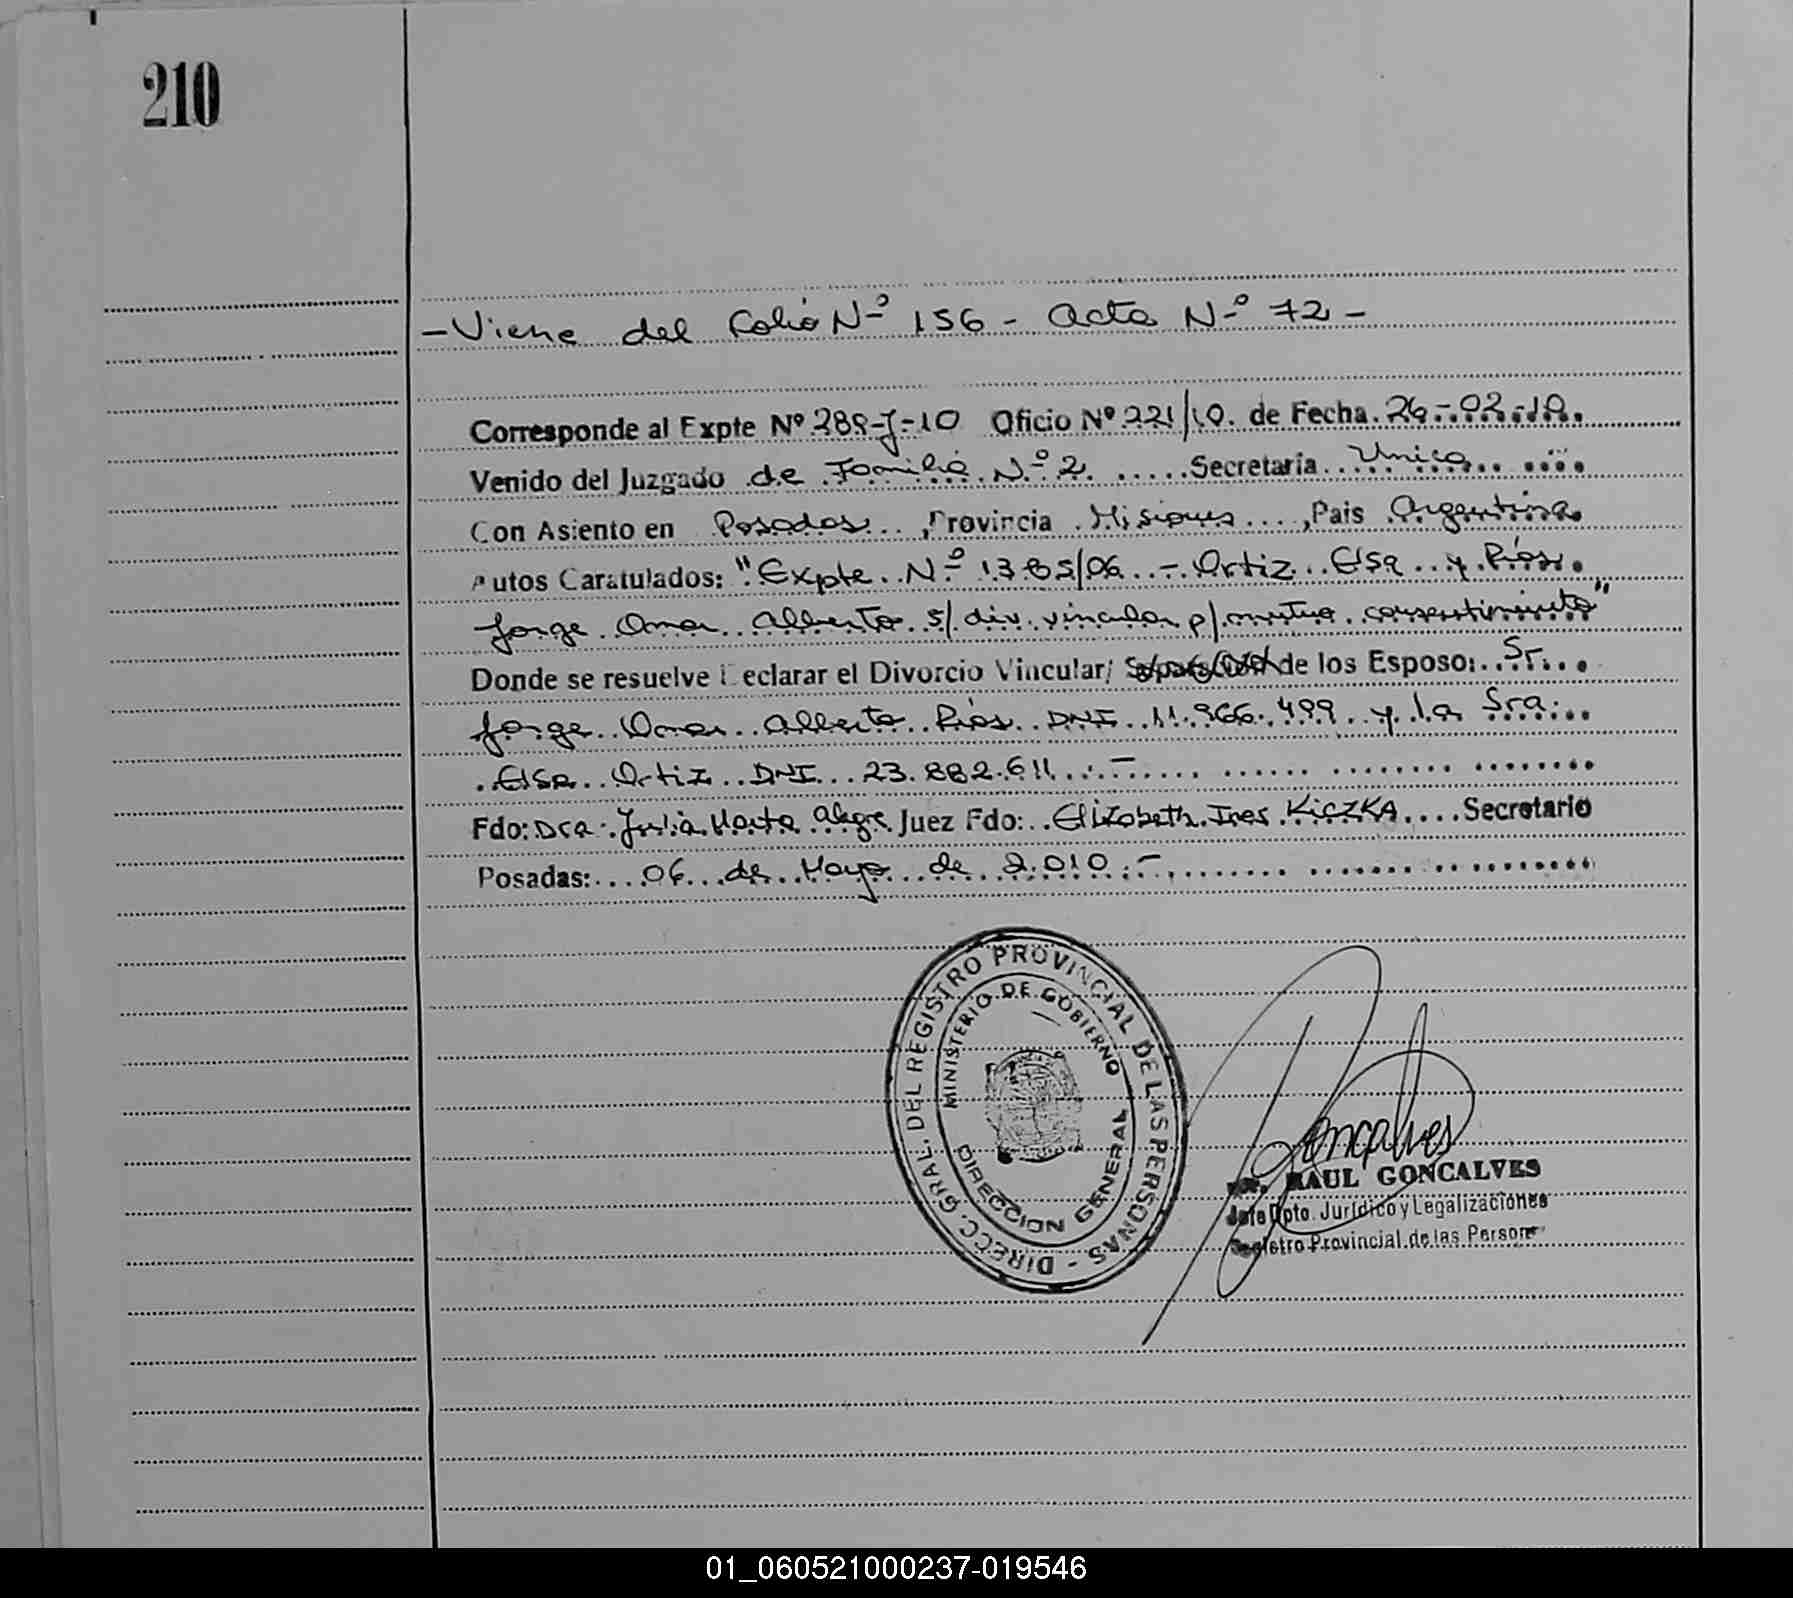 210
- Viene del Folio Nº 156 - Acta Nº 72 -
Corresponde al Expte Nº 289-J-10 Oficio Nº 221/10. de Fecha. 26-02-10.
Venido del Juzgado de Familia Nº 2. .....Secretaría..Unica.. ....
Con Asiento en Posadas.. ,Provincia .Misiones....,Pais Argentina.
Autos Caratulados: "Expte. Nº 1385/06 - Ortiz.. Elsa.. y. Ríos.
Jorge. Omar. Alberto. s/ div. vincular p/ mutuo. consentimiento"
Donde se resuelve Declarar el Divorcio Vincular/ de los Esposo:..Sr...
Jorge.. Omar.. Alberto. Ríos.. DNI. 11.966.499. y la Sra...
.Elsa.. Ortiz.. DNI...23.882.611...-.... ...... ........ ........
Fdo: Dra. Julia. Marta. Alegre. Juez Fdo:..Elizabeth. Ines. KiCZKA....Secretario
Posadas:....06...de..Mayo...de..2.010.-........ ....... .. .........
DIRECC. GRAL. DEL REGISTRO PROVINCIAL DE LAS PERSONAS -
MINISTERIO DE GOBIERNO
DIRECCION GENERAL
Goncalves
RAUL GONCALVES
Jefe Dpto. Jurídico y Legalizaciones
Registro Provincial de las Person
01_060521000237-019546